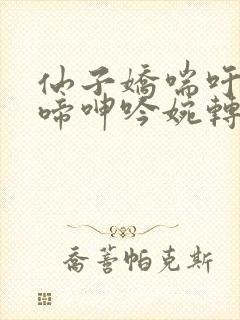 仙子嬌喘吁
啼呻吟婉轉
喬蓍帕克斯